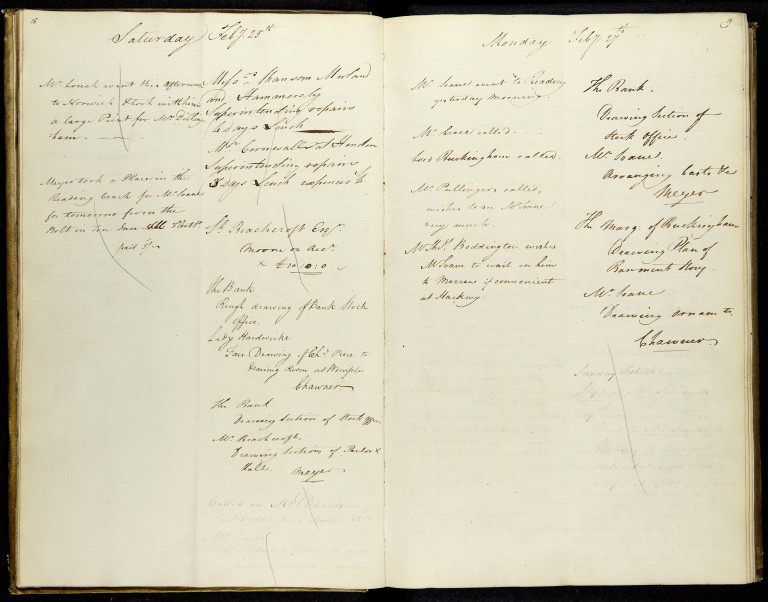 Saturday Feby. 25th
Mr Lonch went this afternoon
to Norwich took with him
a large Print for Mr Dilling
ham.
Meyer took a Place in the
Reading Coach for Mr Soane
for tomorrow from the
Bolt in Tun Inn Fleet St.
paid 5/-
Messrs Ransom Morland
and Hammersly
Superintending repairs
4 days Lonch
Mr Cornewall at Hendon
Superintending repairs
3 days Lonch expences
St Beachcroft Esqr.
Moore on Acct
x £10.0:0
The Bank
Rough drawing of Bank Stock
Office.
Lady Hardwicke
Fair Drawing of Chy Piece to
Drawing Room at Wimple
Chawner
The Bank
Drawing Section of Stock Office
Mr. Beachcroft,
Drawing Sections of Parlor &
Hall. Meyer
Called on
Monday Feby 27th
Mr Soane went to Reading
yesterday Morning.
Mr Soane called.
Lord Buckingham called.
Mr Pullinger called,
wishes to see Mr Soane
very much.
Mr Thos. Boddington wishes
Mr Soane to wait on him
to Morrow if convenient
at Hackney.
The Bank.
Drawing Section of
Stock Office.
Mr. Soane.
Arranging Casts &c
Meyer
The Marq: of Buckingham
Drawing Plan of
Basement Story.
Mr Soane
Drawing Ornamts.
Chawner